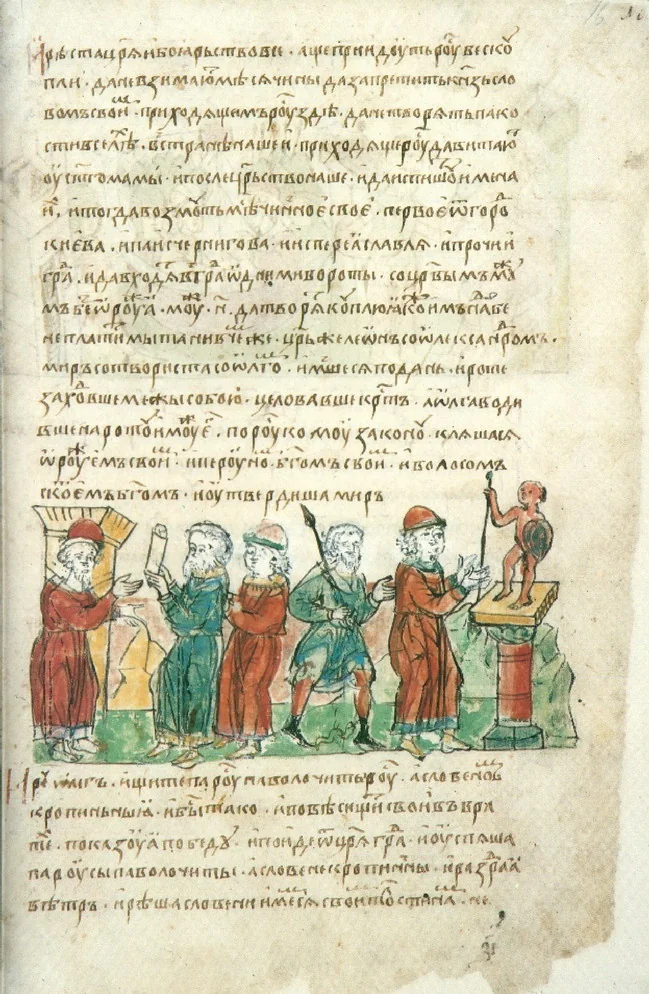 Ирѣста цр҃я и боярьство все . аще приидоуть роу бес коу
пли . да не взимаюⷮ мѣсячины да запретить кн҃зь сло
вомъ своиⷨ . приходящимъ роу здѣ . да не творять пако
сти в селѣⷯ . в странѣ нашеи . приходящеи роу да витаюⷮ
оу ст҃го мамы . и послеⷮ црⷭ҇тво наше . и да испишоуⷮ имена
иⷯ . и тогда возмоуть мѣсячное свое . первое ѿ горо
киева . и паки с чернигова . и ис переаславля . и прочии
граⷣ . и да входяⷮ в граⷣ одними вороты . со црв҃ымъ моуⷤ
мъ без ороуⷤа . моуⷤ . н҃ . да творяⷮ коуплю якоⷤ имъ
не платяще мыта ни в чеⷨже . црь же леѡнъ со ѡлексанⷣромъ .
миръ сотвориста со ѡлгоⷨ . имшеся по дань . и роте
захоⷣвше межы собою . целовавше крⷭ҇тъ . а ѡлга води
вше на ротоу и моуⷤ еⷢ҇ . по роускомоу законоу . кляшася
ѡроуⷤемъ своиⷨ . и пероуноⷨ бг҃омъ своиⷨ . и волосомъ
скоⷮемъ бг҃омъ . и оутвердиша миръ
И реⷱ ѡлегъ . ищиите пⷬ҇а роуⷭ паволочиты роуⷭ . а словеноⷨ
кропиньныя . и быⷭ тако . и повѣси щиⷮ свои въ вра
теⷯ . показоуа побѣдоу . и поиде ѿ цр҃я граⷣ . и оуспяша
па роусь паволочиты . а словене кропинны . и раздра а
вѣтръ . и рѣша словени имеⷨся своиⷨ толстинаⷨ . не